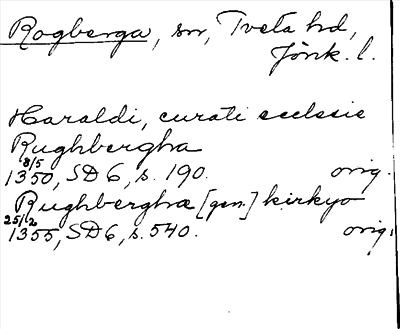 Rogberga, sn, Tveta hd,
Jönk. l.
Haraldi, curati ecclesie
Rughbergha
8/5
1350, SD 6, s. 190. orig.
Rughberghæ [gen.] kirkyo
25/2
1355, SD 6, s. 540. orig.